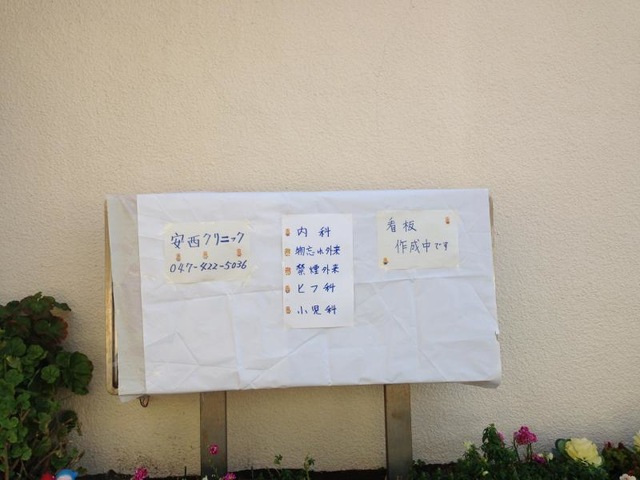 安西クリニック
047-422-5036
内科
物忘れ外来
禁煙外来
ヒフ科
小児科
看板
作成中です